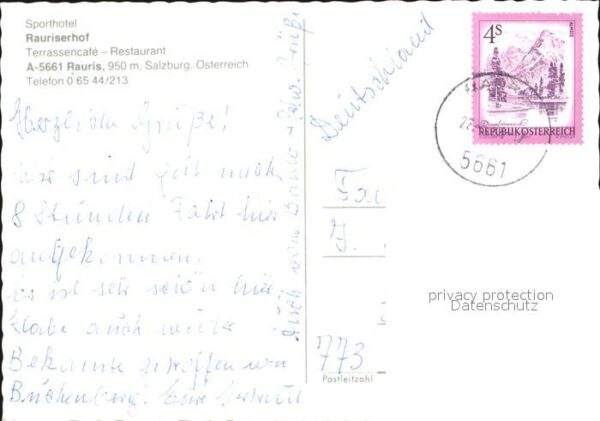 Sporthotel
Rauriserhof
Terrassencafé – Restaurant
A-5661 Rauris, 950 m, Salzburg, Österreich
Telefon 0 65 44/213
Herzliche Grüße!
Wir sind gut nach
8 Stunden Fahrt hier
angekommen.
Es ist sehr schön hier,
Habe auch wieder
Bekannte getroffen von
Büchenberg. Eure
Auch von
Grüße
Deutschland
4S
REPUBLIK ÖSTERREICH
5661
Fa
J.
773
Postleitzahl
privacy protection
Datenschutz